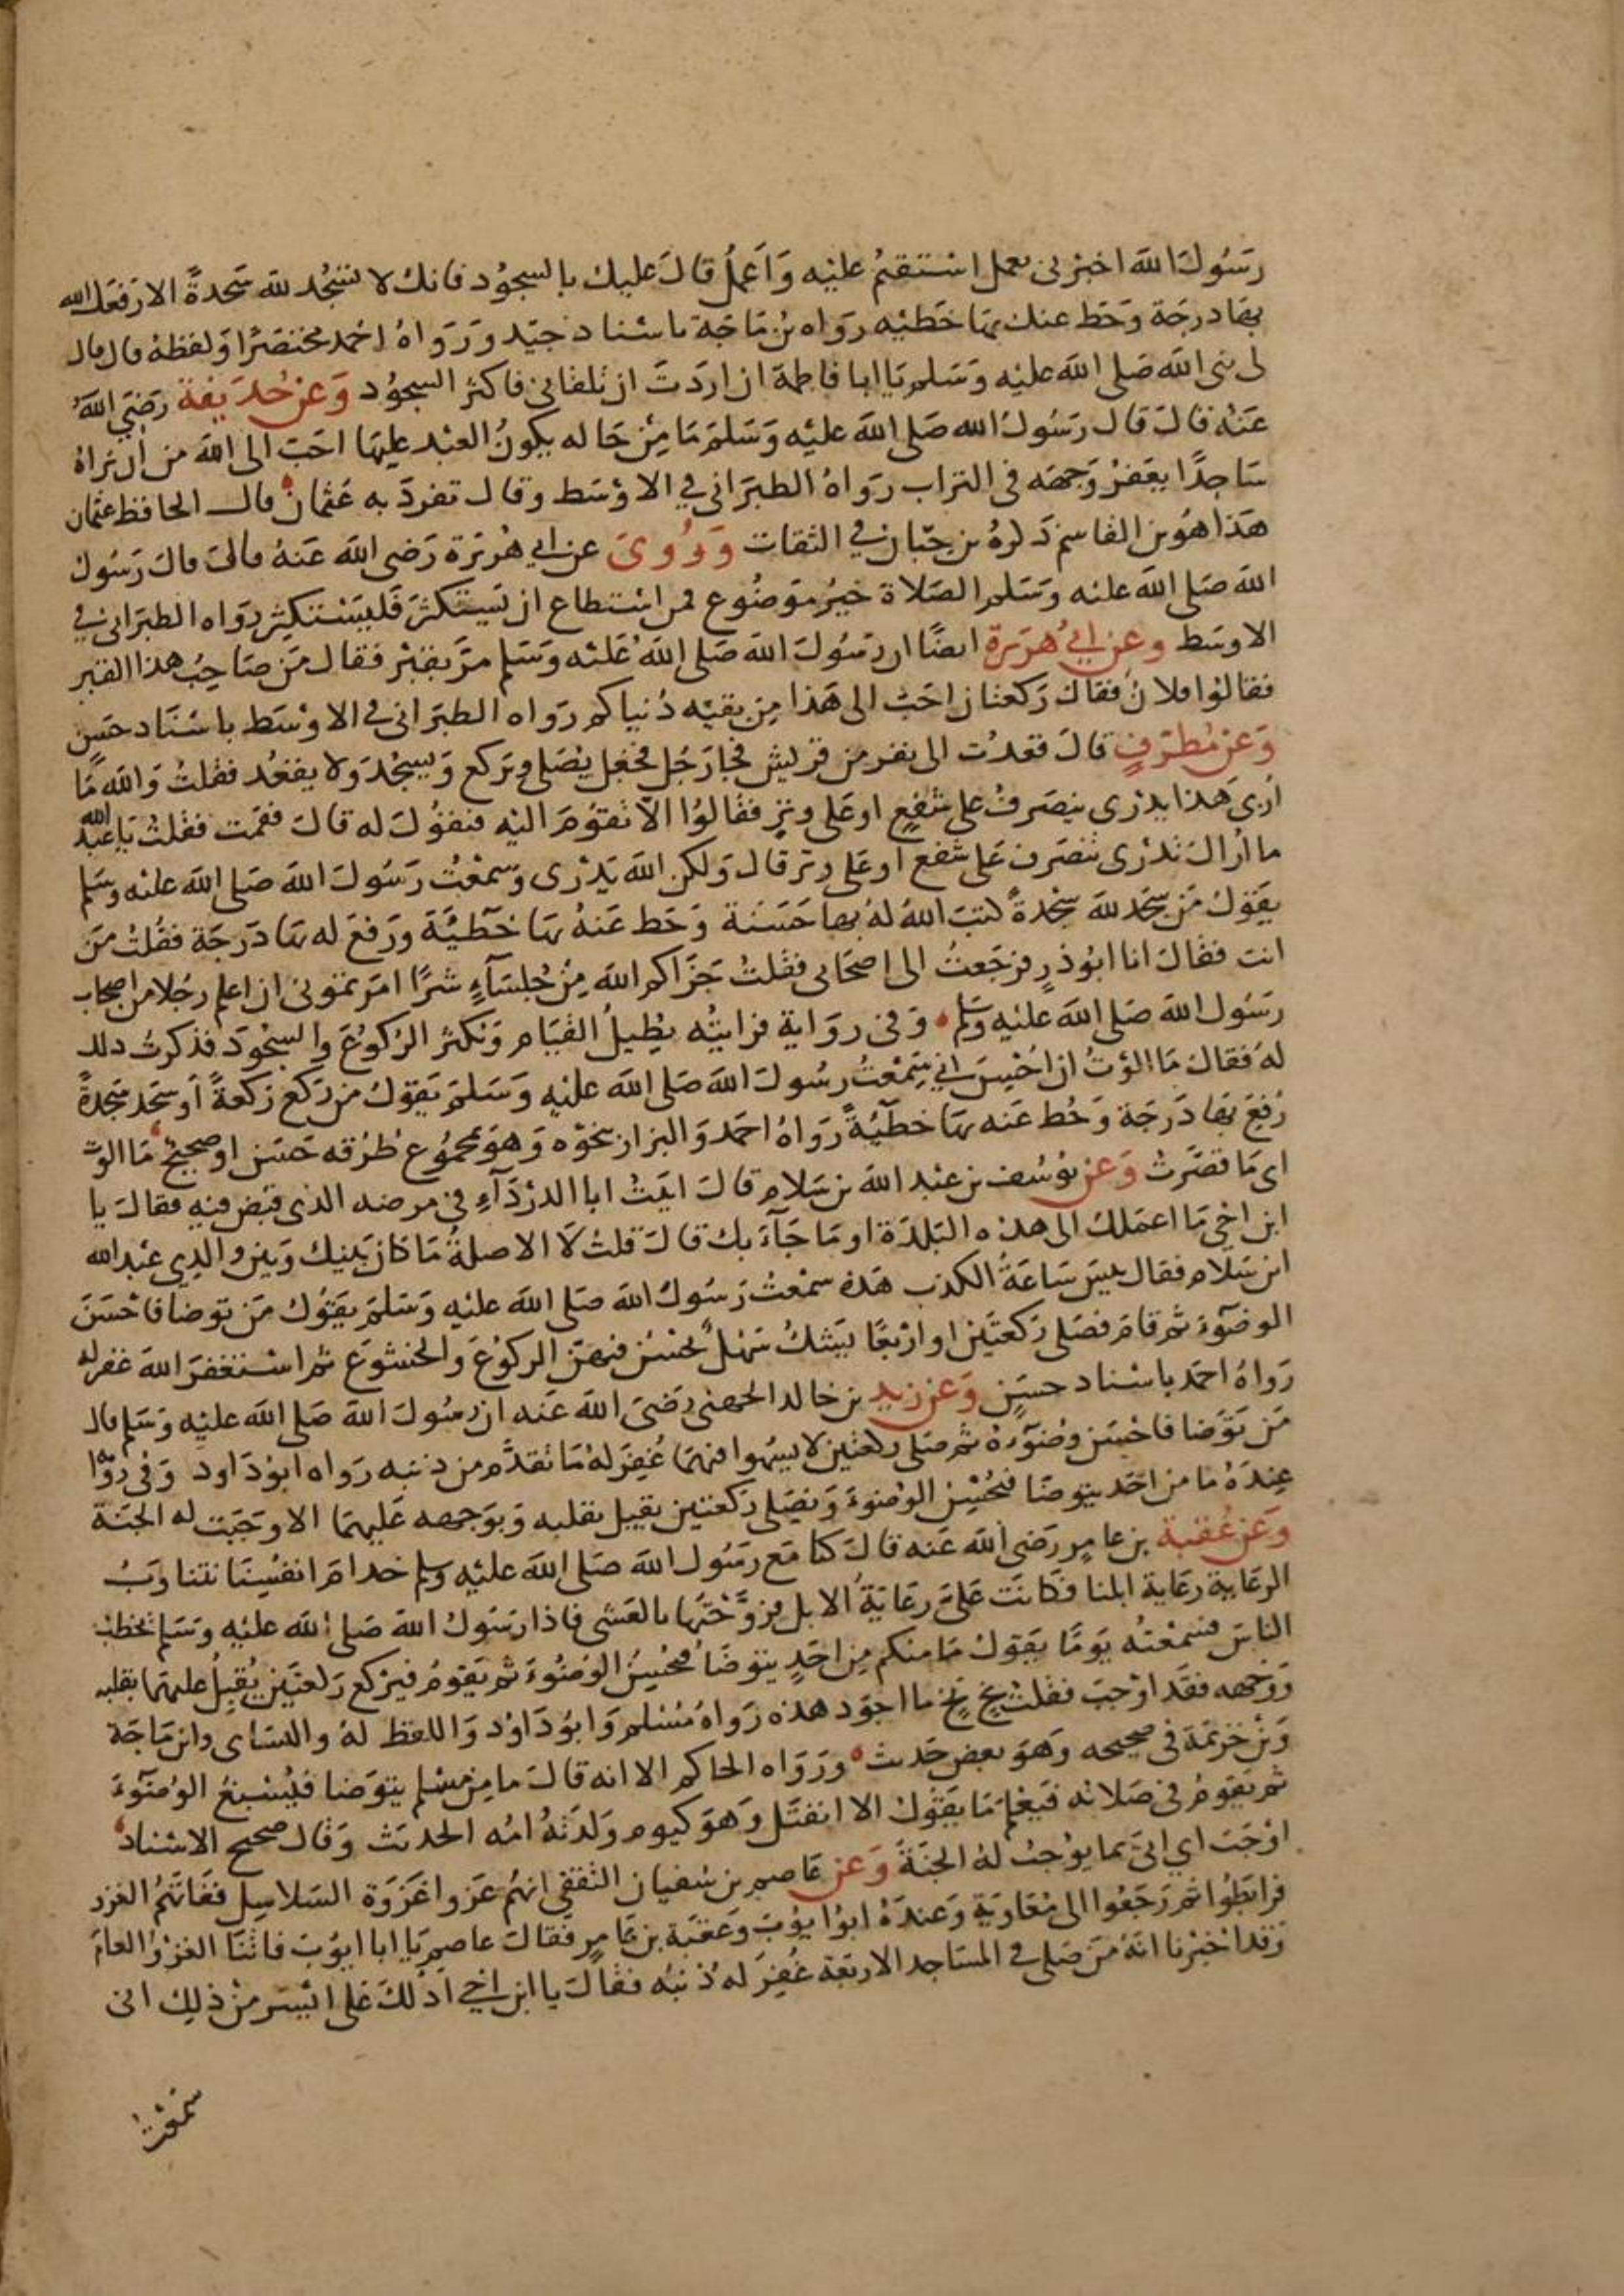 رَسُولَ اللهَ اخبرني بعمل استقيمُ عليه وَاَعملُ قالَ عليك بالسجُود فانك لا تسجُد لله سَجدةً الا رَفعَك الله
بهَا درجَة وَحَط عنك بهَا خَطيْه رواه بن مَاجَة باسْناد جيّد ورَوَاهُ احْمد مختصَرًا وَلفظهُ قال قال
لى نبى الله صَلى الله عليْه وَسَلم يَا ابا فاطمة ان اردَتَ ان تلقانى فاكثر السجُود وَعَن حُدَيفة رَضىَ اللهُ
عَنه قالَ قال رَسُولُ الله صَلى الله عليْه وَسَلمَ مَا مِنْ حَاله يكونُ العبْد عليهَا احَبّ الى الله من ان يراهُ
سَاجدًا يعَفرُ وَجهَه فى التراب رَوَاهُ الطبَرَانى في الاوْسَط وقال تفردَ به عَثمان قال الحافظ عثمان
هَذا هُوَ بن القاسم ذَكرهُ بن حبّان في الثقات وَرُوىَ عن ابي هُريَرة رَضى الله عَنهُ قالَ قالَ رَسُولُ
الله صَلى الله عليه وسَلم الصَلاة خيْرُ مَوضُوع فمن اسْتطاع ان يَستكثرَ فَليَسْتكثِر رواه الطبَرانى في
الاوسَط وعن ابي هُرَيرة ايضًا ان رَسُولَ الله صَلى اللهُ عَليْه وَسَلم مرّ بقبْر فقال مَن صَاحِبُ هذا القبر
فقالوُا فلانُ فقالَ رَكعتان احَبّ الى هَذا مِن بقيّه دُنياكم رَواه الطبَرانى في الاوْسَط باسْنَاد حسَن
وَعن مُطرّفٍ قالَ قعدْت الى نفر من قريش فجا رَجُل فجعَل يُصَلى ويركع وَيسجْدَ وَلا يقعُد فقلتُ وَالله مَا
اُرىَ هَذا يدْرى ينصَرفُ على شفعٍ او عَلى وتْرٍ فقالوُا الاَ تقوُمَ اليْه فتقوُلَ له قالَ فقمَت فقلتُ يَا عَبدَ الله
ما اُراكَ تدْرى تنصَرف عَلى شفع او عَلى وتر قال وَلكن الله يَدْرى وَسمْعْتُ رَسُولَ الله صَلى الله عليْه وسَلم
يقَولُ مَن سجَد لله سَجْدةً كتبَ اللهُ لهُ بهَا حَسَنة وَحَط عَنهُ بهَا خَطيئةَ ورَفعَ له بهَا دَرجَة فقلتُ مَن
انت فقالَ انا ابوُ ذرٍ فرَجَعتُ الى اصحَابى فقلتُ جَزَاكم الله مِنْ جُلسَآءٍ شرًا امَرتموُنى ان اعلم رجُلا من اصحَاب
رَسُول الله صَلى الله عليْه وسَلم وَفى روَاية فرَايتهُ يطِيلُ القيَام وَيكثر الرُكوُعَ والسجُودَ فذكرتُ ذلك
لهُ فقالَ مَا الوْتُ ان اُحْسِنَ اني سَمِعْتُ رسُولَ الله صَلى الله عليْه وَسَلمَ يَقوُلُ من رَكع رَكعةً اَو سَجَد سَجدةً
رُفعَ بهَا دَرجَة وَحُط عَنه بهَا خَطيْئةً رَوَاهُ احمَد وَالبزار بنحَوْه وَهوَ بمجمُوع طُرُقه حَسَن او صحيح مَا الوت
اى مَا قصَّرتُ وَعن يوْسُف بن عبْد الله بن سَلام قالَ اتيْتُ ابا الدرْدَآءِ فى مرضه الذى قبَض فيه فقالَ يا
ابن اخىِ مَا اعمَلكَ الى هَذه البَلدَة او مَا جَآءَ بك قالَ قلتُ لَا الا صلةُ مَا كانَ بيْنكَ وَبيْن والدِي عبْد الله
ابن سَلام فقال بيسَ سَاعَةُ الكذب هَذه سَمْعْتُ رَسُولَ الله صَلى الله عليْه وَسَلمَ يقوُلُ مَن توضا فاحْسَنَ
الوضوٓء ثمَ قامَ فصَلى رَكعتَيْن او اربَعًا يَشكُ سَهْل يُحْسنُ فيهنّ الركوُعَ والخشوُعَ ثم اسْتغفرَ الله غفر له
رَواهُ احمَد باسْناد حسَنٍ وَعَن زيد بن خالد الجهنى رَضىَ الله عَنه ان رسُولَ الله صَلى الله عليْه وَسَلم قال
مَن تَوضَا فاحْسَن وضُوٓءهُ ثمَ صَلى ركعتين لا يسهُوا فيهمَا غُفِرَ لهُ مَا تقدَّم من ذنبه رَواه ابوُ دَاود وَفى روَا
عِندَهُ ما من احَد يتوضَا فيُحْسِن الوُضوُءَ وَيُصَلى رَكعتين يقبل بقلبه وَبوَجهه عَليهمَا الا وَجَبَت له الجَنَة
وَعَن عُقبَة بن عامرٍ رَضى الله عَنه قالَ كنا مَع رسَوُل الله صَلى الله عليْه وسلم خدامَ انفُسِنَا نتناوَبُ
الرعَايه رعَاية ابلنا فكانَت عَلىَّ رعَايَةُ الابل فروَّحْتهَا بالعَشى فاذا رَسَوُل الله صَلى الله عليْه وَسَلم يخطبُ
الناسَ فسمْعْتُه يَومًا يقوُلُ مَا منكم مِن احَدٍ يتوضَا فيُحْسِنُ الوُضوُءَ ثمَ يَقوُمُ فيَرْكع رَكعتَيْن يُقبلُ عليهمَا بقلبه
وَوجهه فقَد اوْجبَ فقلتُ بَخٍ بَخٍ ما اجوَد هَذه رَواهُ مُسْلم وَابوُ دَاوُد وَاللفظ لهُ والنسَاى وابن مَاجَة
وَبن خزيْمَة فى صحيحه وَهوَ بعض حَديث ورَوَاه الحاكم الا انه قالَ ما مِن مسْلم يتوضا فيُسْبغُ الوُضوٓءَ
ثمَ يَقوُمُ فى صَلاته فيَعْلم مَا يقوُلُ الا انفتَل وَهوَ كيوم وَلدَتهُ امُه الحديث وَقال صحيح الاسْناد
اوْجَبَ اي اتىَ بما يوُجبُ لهُ الجَنّة وَعن عَاصم بن سُفيان الثقفى انهُم غَزوا غَزَوَة السَلاسِل ففَاتَهُم الغزو
فرابَطوُا ثمَ رَجَعُوا الى مُعَاويَة وَعندَهُ ابوُا ايوُبَ وَعقبَة بن عَامرٍ فقالَ عاصِم يَا ابا ايوُبَ فاتَنَا الغزْوُ العامَ
وَقد اخْبرْنا انهَ مَن صَلى فى المسَاجد الاربَعة غُفِرَ له ذنبُه فقَالَ يا ابن اخي ادُلكَ عَلى ايْسَر مِنْ ذلِك انى
سَمعْتُ